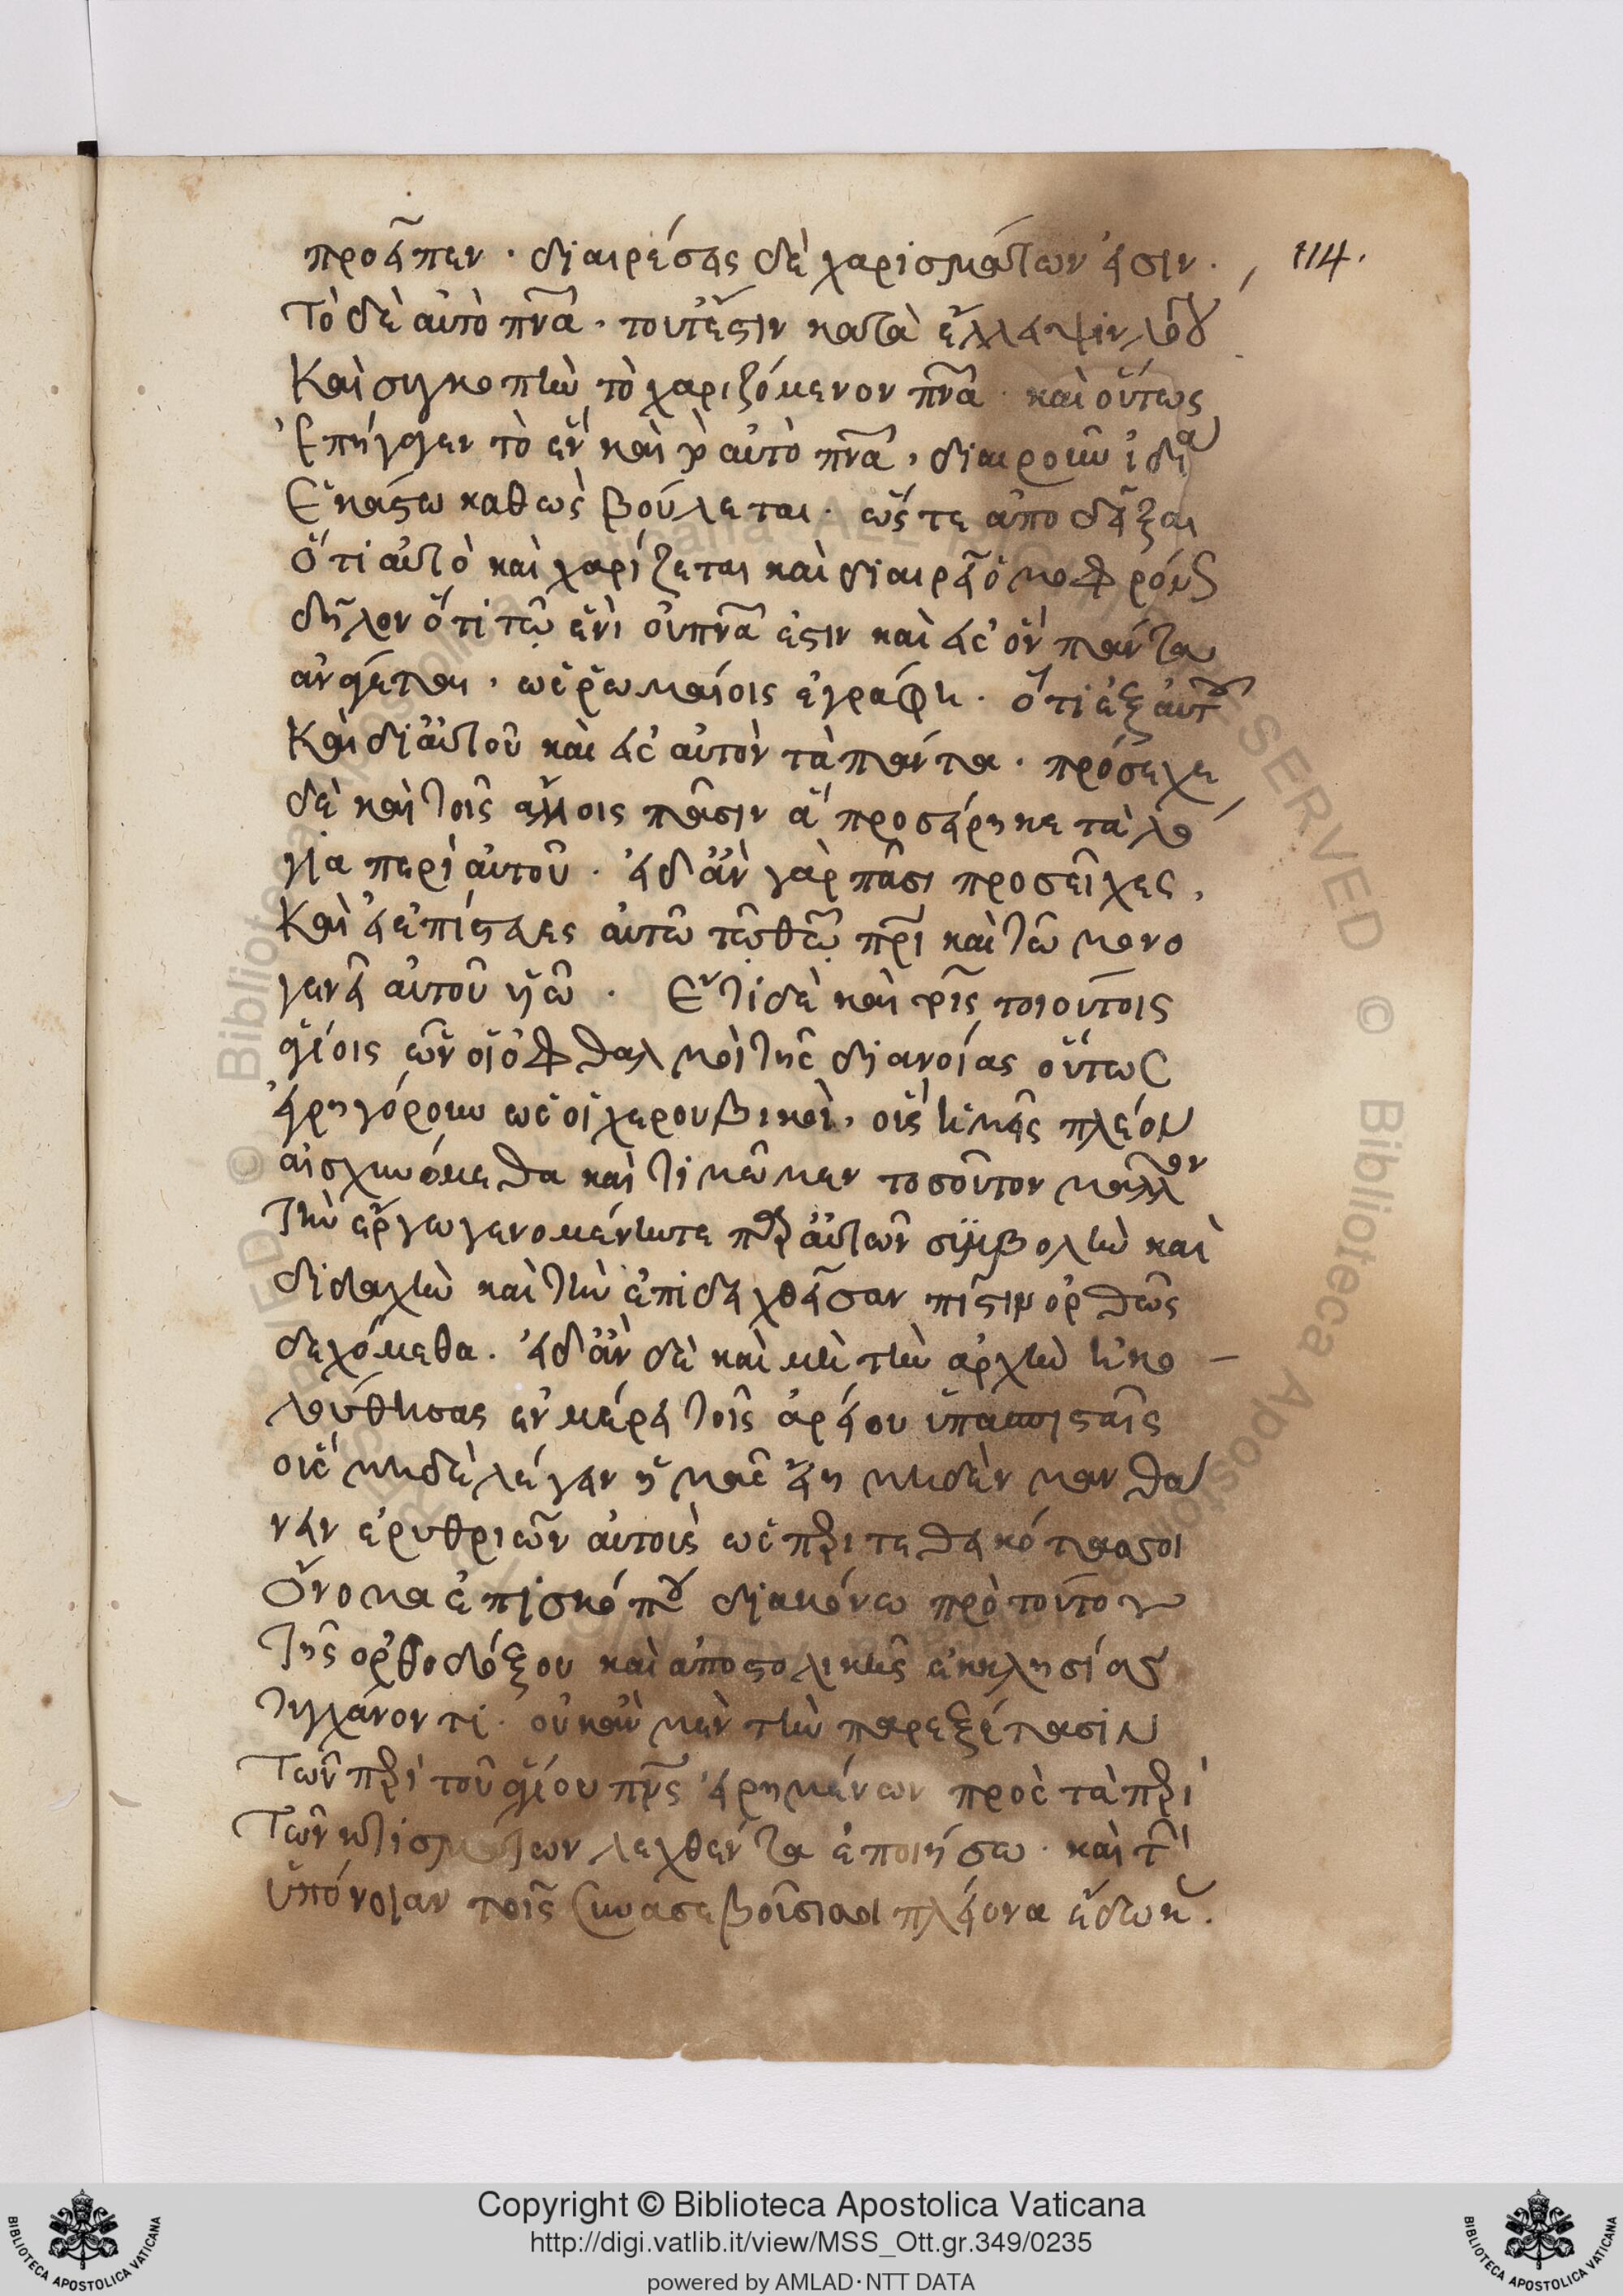 προεῖπεν · διαιρέσεις δὲ χαρισμάτων εἰσίν ·
114.
Τὸ δὲ αὐτὸ πνα · τουτέστιν κατὰ ἔλλειψιν λόγου
Καὶ συγκοπὴν τὸ χαριζόμενον πνα · καὶ οὕτως
Ἐπήγαγεν τὸ ἓν καὶ τὸ αὐτὸ πνα, διαιροῦν ἰδίᾳ
Ἑκάστω καθὼς βούλεται · ὥστε ἀποδεῖξαι
Ὅτι αὐτὸ καὶ χαρίζεται καὶ διαιρεῖ ὁμοφρόνως
δῆλον ὅτι τῷ ἑνὶ οὗ πνα ἐστιν καὶ εἰς ὃν πάντα
ἀνάγεται · ὡς ῥωμαίοις ἐγράφη · ὅτι ἐξ αὐτοῦ
Καὶ δι αὐτοῦ καὶ εἰς αὐτὸν τὰ πάντα · πρόσεχε
δὲ καὶ τοῖς ἄλλοις πᾶσιν ἃ προσείρηκε τὰ λό
για περὶ αὐτοῦ · εἰ δ ἂν γὰρ πᾶσι προσεῖχες,
Καὶ ἐπίστευες αὐτῶ τῷ θῷ πρι καὶ τῶ μονο
γενεῖ αὐτοῦ υἱῶ · Ἔτι δὲ καὶ τοῖς τοιούτοις
ἁγίοις ὧν οἱ ὀφθαλμοὶ τῆς διανοίας οὕτως
ἐγρηγόρουν ὡς οἱ χερουβικοὶ, οὓς ἡμεῖς πλέον
αἰσχυνόμεθα καὶ τιμῶμεν τοσοῦτον μᾶλλον
Τὴν ἔργω γενομένην τε παρ αὐτῶν συμβολὴν καὶ
διδαχὴν καὶ τὴν ἐπιδειχθεῖσαν πίστιν ὀρθῶς
δεχόμεθα. εἰ δ ἂν δὲ καὶ μὴ τὴν ἀρχὴν ἠκο
λούθησας ἐν μέρει τοῖς ἀρείου ὑπασπισταῖς
οἷς μηδὲ λέγειν ἡμᾶς
νειν ἐρυθριῶν αὐτοῖς ὡς περιτεθεικόται σοι
Ὄνομα ἐπισκόπου διακόνω πρὸ τούτου
Τῆς ὀρθοδόξου καὶ ἀποστολικῆς ἐκκλησίας
Τυγχάνοντι · οὐκ ἂν μὲν τὴν παρεξέτασιν
Τῶν περὶ τοῦ ἁγίου πνς εἰρημένων πρὸς τὰ περὶ
Τῶν κτισμάτων λεχθέντα ἐποιήσω · καὶ
ὑπόνοιαν τοῖς συνασεβοῦσίν σοι πλείονα ἔδωκ.
Copyright © Biblioteca Apostolica Vaticana
http://digi.vatlib.it/view/MSS_Ott.gr.349/0235
powered by AMLAD·NTT DATA
BIBLIOTECA APOSTOLICA VATICANA
BIBLIOTECA APOSTOLICA VATICANA